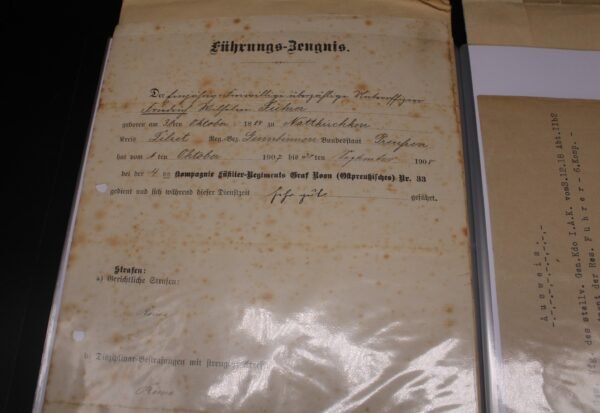 Führungs-Zeugnis.
Der einjährig-freiwillige überzählige Unteroffizier
Friedrich Wilhelm
geboren am Oktober 18 zu
Kreis Tilsit Reg.-Bez. Gumbinnen Bundesstaat Preußen
hat vom 1 ten Oktober 190 bis ten September 190
bei der 4 ten Kompagnie Füsilier-Regiments Graf Roon (Ostpreußisches) Nr. 33
gedient und sich während dieser Dienstzeit sehr gut geführt.
Strafen:
a) Gerichtliche Strafen:
Keine
b) Disziplinar-Bestrafungen mit strengem
Keine
Ausweis.
des stellv. Gen.Kdo I.A.K. vom 3.12.18 Abt.IIb2
der Res. Führer - 6.Komp. -